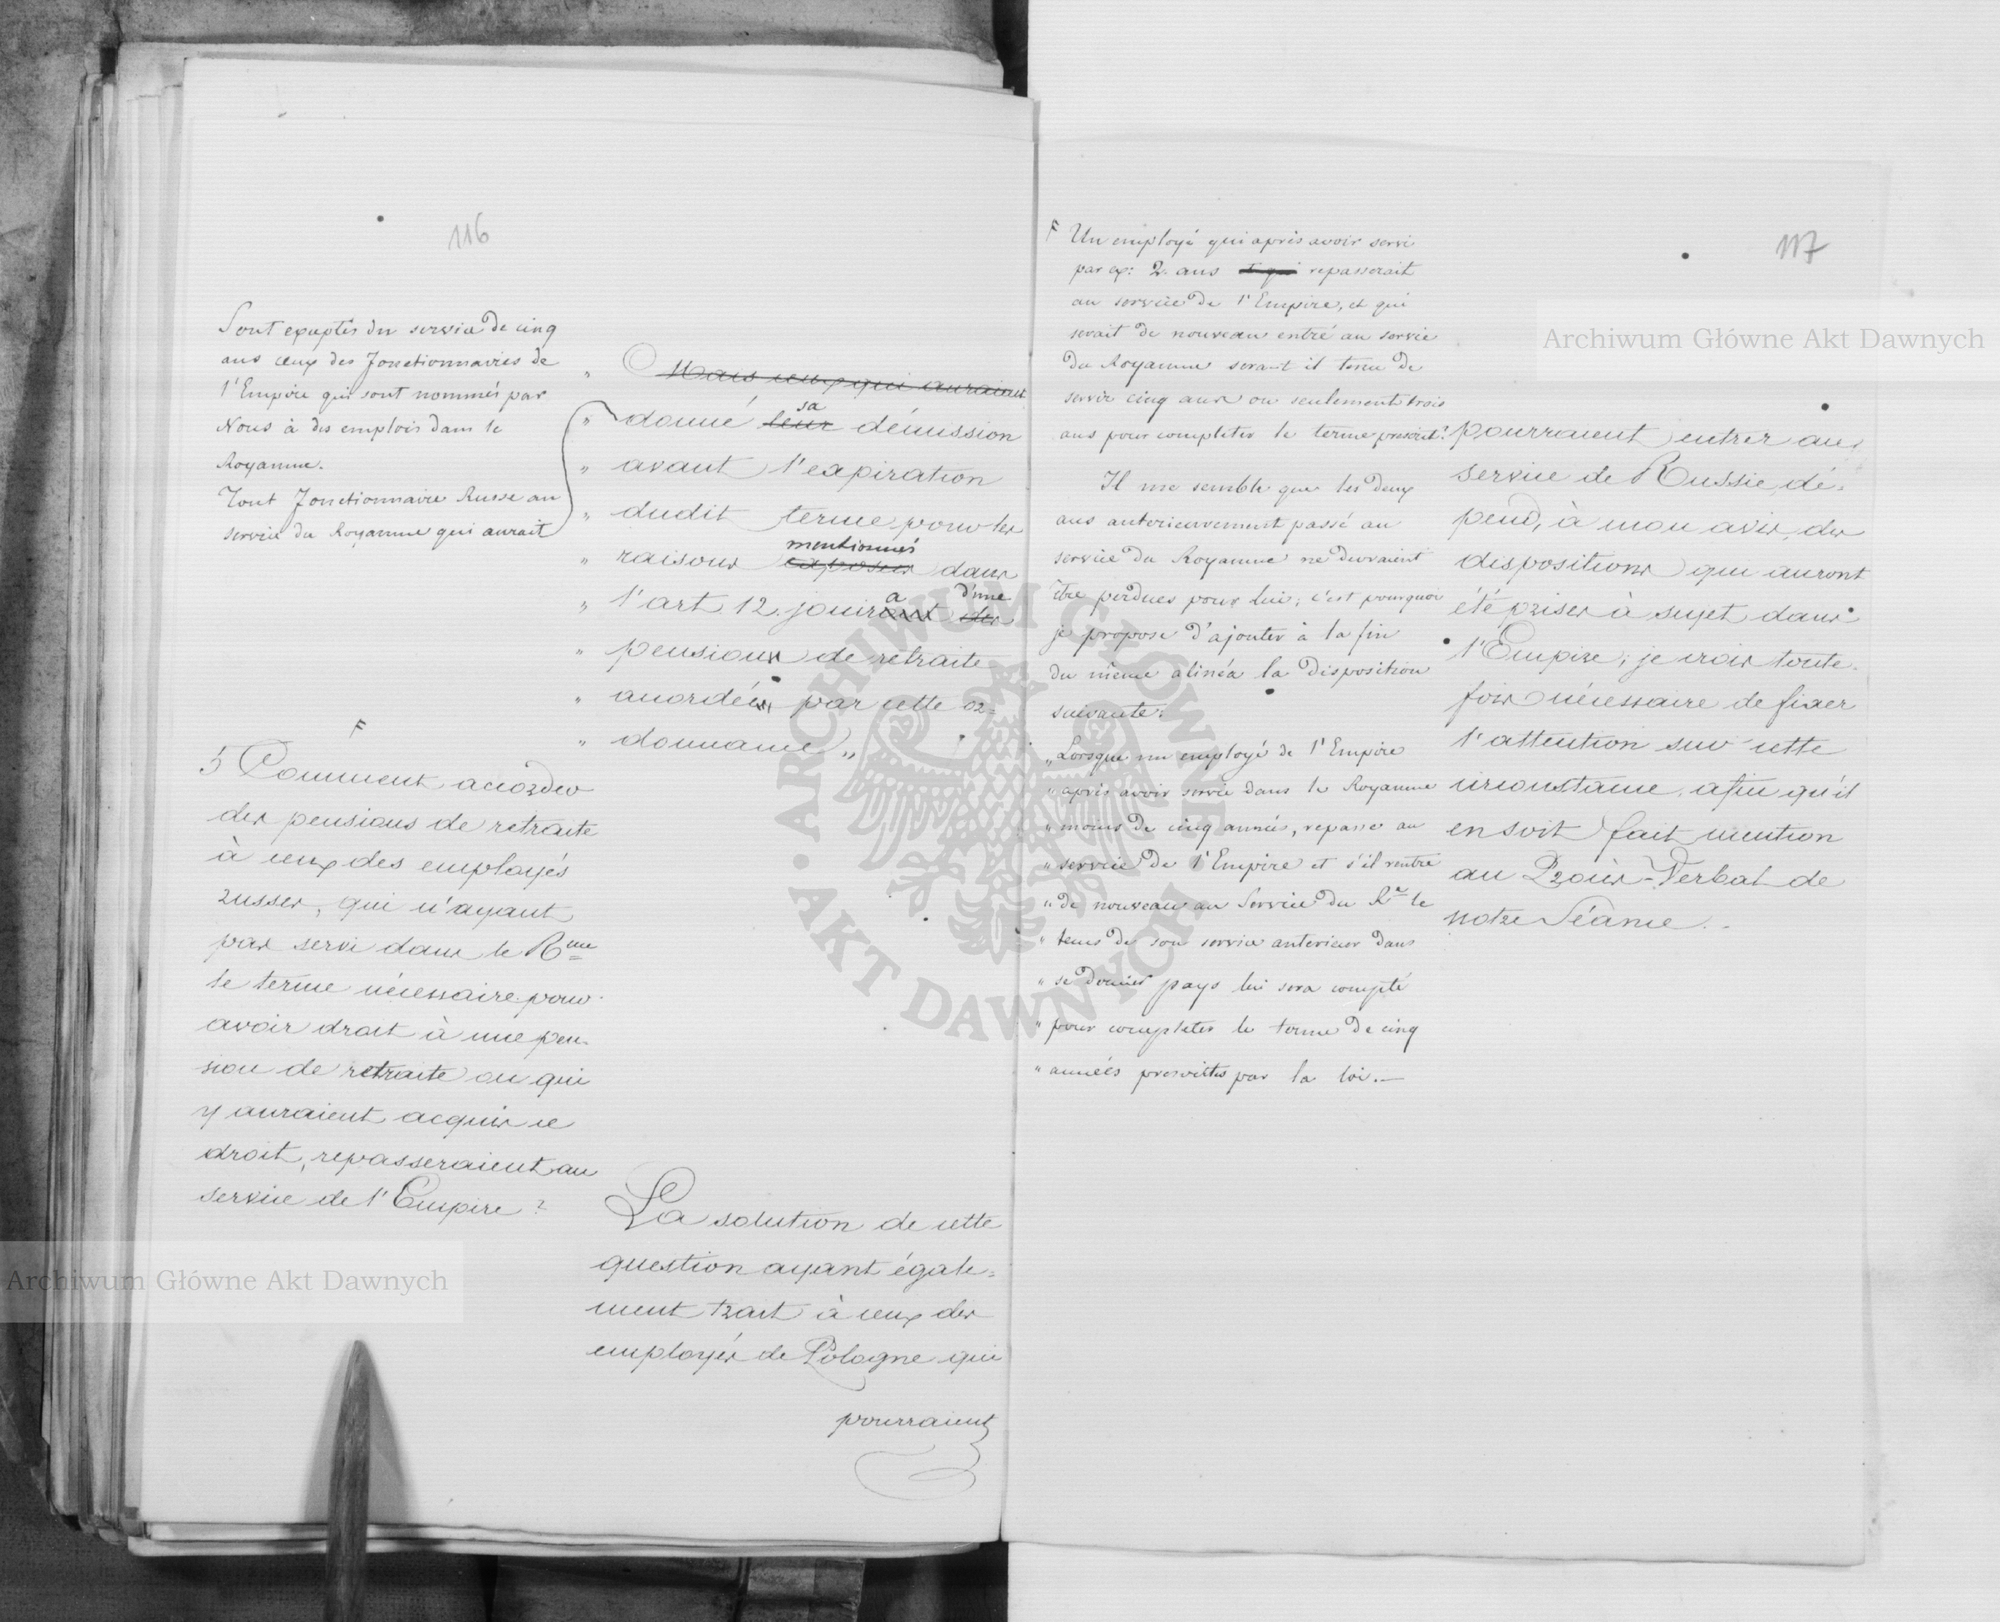 116
Sont exceptés du service de cinq
ans ceux des fonctionnaires de
l'Empire qui sont nommés par
Nous à des emplois dans le
Royaume.
Tout fonctionnaire Russe au
service du Royaume qui aurait
„ Mais ceux qui auraient
„ donné leur sa démission
„ avant l'expiration
„ dudit terme pour les
„ raisons exposées mentionnés dans
„ l'art 12. jouira d'une des
„ pensions de retraite
„ accordées par cette or=
„ donnance „
F
5 Comment accorder
des pensions de retraite
à ceux des employés
russes, qui n'ayant
pas servi dans le Rme
le terme nécessaire pour
avoir droit à une pen-
sion de retraite ou qui
y auraient acquis ce
droit, repasseraient au
service de l'Empire ?
La solution de cette
question ayant égale=
ment trait à ceux des
employés de Pologne qui
pourraient
117
F Un employé qui après avoir servi
par ex: 2. ans repasserait
au service de l'Empire, et qui
serait de nouveau entré au service
du Royaume serait il tenu de
servir cinq ans ou seulement trois
ans pour completer le terme prescrit?
Il me semble que les deux
ans anterieurement passé au
service du Royaume ne devraient
être perdues pour lui; c'est pourquoi
je propose d'ajouter à la fin
du même alinéa la disposition
suivante:
„Lorsque un employé de l'Empire
„ après avoir servie dans le Royaume
„ moins de cinq années, repasse au
„ service de l'Empire et s'il rentre
„ de nouveau au Service du Re le
„ tems de son service anterieur dans
„ se dernier pays lui sera compté
„ pour completer le terme de cinq
„ années prescrittes par la loi.—
pourraient entrer au
service de Russie, dé-
pend, à mon avis, des
dispositions qui auront
été prises à sujet dans
l'Empire; je crois toute-
fois nécessaire de fixer
l'attention sur cette
circonstance, afin qu'il
en soit fait mention
au Procès-Verbal de
notre Séance.
Archiwum Główne Akt Dawnych
Archiwum Główne Akt Dawnych
ARCHIWUM GŁÓWNE · AKT DAWNYCH ·